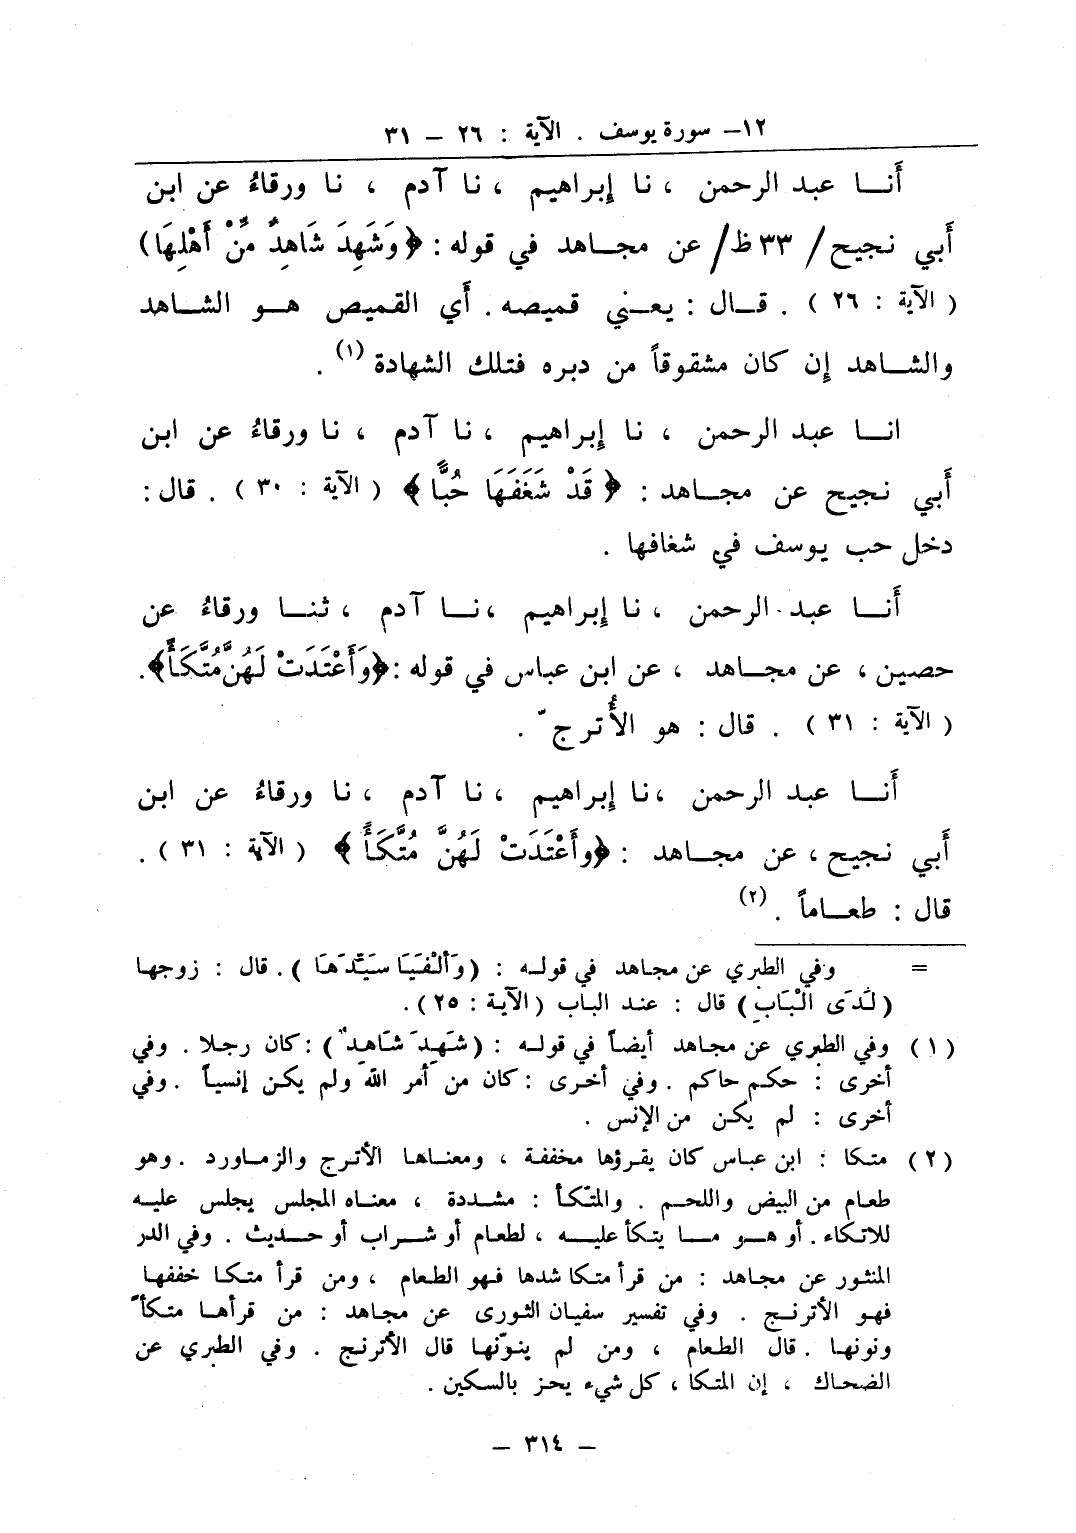 ١٢- سورة يوسف . الآية : ٢٦ - ٣١
أَنـــا عبد الرحمن ، نا إبراهيم ، نا آدم ، نا ورقاءُ عن ابن
أَبي نجيح / ٣٣ظ/ عن مجـاهد في قوله : ﴿ وَشَهِدَ شَاهِدٌ مِّنْ أَهْلِهَا)
( الآية : ٢٦ ) . قـال : يعـني قميصه . أَي القميص هـو الشـاهد
والشـاهد إِن كان مشقوقاً من دبره فتلك الشهادة (١) .
انـــا عبد الرحمن ، نا إبراهيم ، نا آدم ، نا ورقاءُ عن ابن
أَبي نجيح عن مجـاهد : ﴿ قَدْ شَغَفَهَا حُبًّا ﴾ ( الآية : ٣٠ ) . قال :
دخل حب يوسف في شغافها .
أَنـــا عبد الرحمن ، نا إبراهيم ، نـا آدم ، ثنـا ورقاءُ عن
حصين ، عن مجـاهد ، عن ابن عباس في قوله : ﴿وَأَعْتَدَتْ لَهُنَّ مُتَّكَأً﴾.
( الآية : ٣١ ) . قال : هو الأُترجّ .
أَنـــا عبد الرحمن ، نا إبراهيم ، نا آدم ، نا ورقاءُ عن ابن
أَبي نجيح ، عن مجـاهد : ﴿وأَعْتَدَتْ لَهُنَّ مُتَّكَأً ﴾ ( الآية : ٣١ ) .
قال : طعـاماً . (٢)
= وفي الطبري عن مجاهد في قوله : ( وَأَلْفَيَا سَيِّدَهَا ) . قال : زوجها
( لَدَى الْبَابِ ) قال : عند الباب ( الآية : ٢٥ ) .
(١) وفي الطبري عن مجاهد أيضاً في قوله : ( شَهِدَ شَاهِدٌ ) : كان رجلا . وفي
أخرى : حكم حاكم . وفي أخرى : كان من أمر الله ولم يكن إنسياً . وفي
أخرى : لم يكن من الإنس .
(٢) متكا : ابن عباس كان يقرؤها مخففة ، ومعناها الأترج والزماورد . وهو
طعام من البيض واللحم . والمتّكأ : مشددة ، معناه المجلس يجلس عليه
للاتكاء . أو هـو مـا يتكأ عليـه ، لطعام أو شـراب أو حـديث . وفي الدر
المنثور عن مجاهد : من قرأ متكا شدها فهو الطعام ، ومن قرأ متكا خففها
فهو الأترنج . وفي تفسير سفيان الثورى عن مجاهد : من قرأها متكأً
ونونها . قال الطعام ، ومن لم ينوّنها قال الأترنج . وفي الطبري عن
الضحاك ، إن المتكا ، كل شيء يحز بالسكين .
– ٣١٤ –